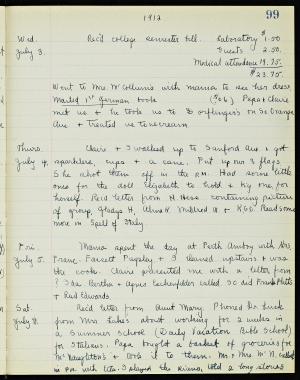 99
1912
Wed. Rec'd college semester bill. Laboratory $1.50
July 3. Guests 2.50
Medical attendance 19.75
$23.75
Went to Mrs. McCollum's with mama to see her dress.
Mailed 1st German book Papa & Claire
met us & he took us to on So Orange
Ave & treated us to icecream.
Thurs. Claire & I walked up to Sanford Ave & got
July 4. sparklers, caps & a cane. Put up our 3 flags.
She shot them off in the P.M. Had some little
ones for the doll Elizabeth to hold & big one for
herself. Rec'd letter from H. Hess containing picture
of group, Gladys H, Alma K Mildred W & KGE. Read some
more in Spell of Italy.
Fri. Mama spent the day at Perth Amboy with Mrs.
July 5. Franc. Forrest Pugsley & I cleaned upstairs & was
the cook. Claire presented me with a letter from
Ida. Bertha & Agnes called. So did Frank Potts
& Rod Edwards.
Sat. Rec'd letter from Aunt Mary. Phoned Dr. Luck
July 6. from Mrs. Lake's about working for 2 weeks in
a Summer School (Daily Vacation Bible School)
for Italians. Papa bought a basket of groceries for
Mc Naughton's & took it to them. Mr & Mrs McN. called
in P.M. with Uta. I played the piano, told 2 long stories